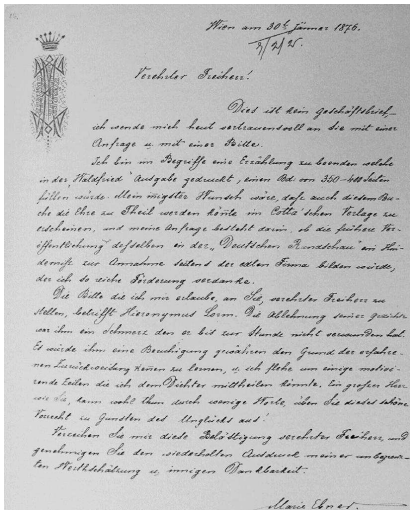 Wien am 30t Jänner 1876.
Verehrter Freiherr!
Dies ist kein Geschäftsbrief,
ich wende mich heut vertrauensvoll an Sie mit einer
Anfrage u. mit einer Bitte.
Ich bin im Begriffe eine Erzählung zu beenden welche
in der "Waldfried" Ausgabe gedruckt, einen Bd von 350-400 Seiten
füllen würde. Mein innigster Wunsch wäre, daß auch diesem Bu-
che die Ehre zu Theil werden könnte im Cotta'schen Verlage zu
erscheinen, und meine Anfrage besteht darin, ob die frühere Ver-
öffentlichung desselben in der "Deutschen Rundschau" ein Hin-
derniß zur Annahme seitens der edlen Firma bilden würde,
der ich so reiche Förderung verdanke.
Die Bitte die ich mir erlaube, an Sie, verehrter Freiherr zu
stellen, betrifft Hieronymus Lorm. Die Ablehnung seiner Gedichte
war ihm ein Schmerz den er bis zur Stunde nicht verwunden hat.
Es würde ihm eine Beruhigung gewähren den Grund der erfahre-
nen Zurückweisung kennen zu lernen, u. ich flehe um einige motivi-
rende Zeilen die ich dem Dichter mittheilen könnte. Ein großer Herr
wie Sie, kann wohl thun durch wenige Worte, üben Sie dieses schöne
Vorrecht zu Gunsten des Unglücks aus!
Verzeihen Sie mir diese Belästigung verehrter Freiherr, und
genehmigen Sie den wiederholten Ausdruck meiner unbegrenz-
ten Werthschätzung u. innigen Dankbarkeit.
Marie Ebner